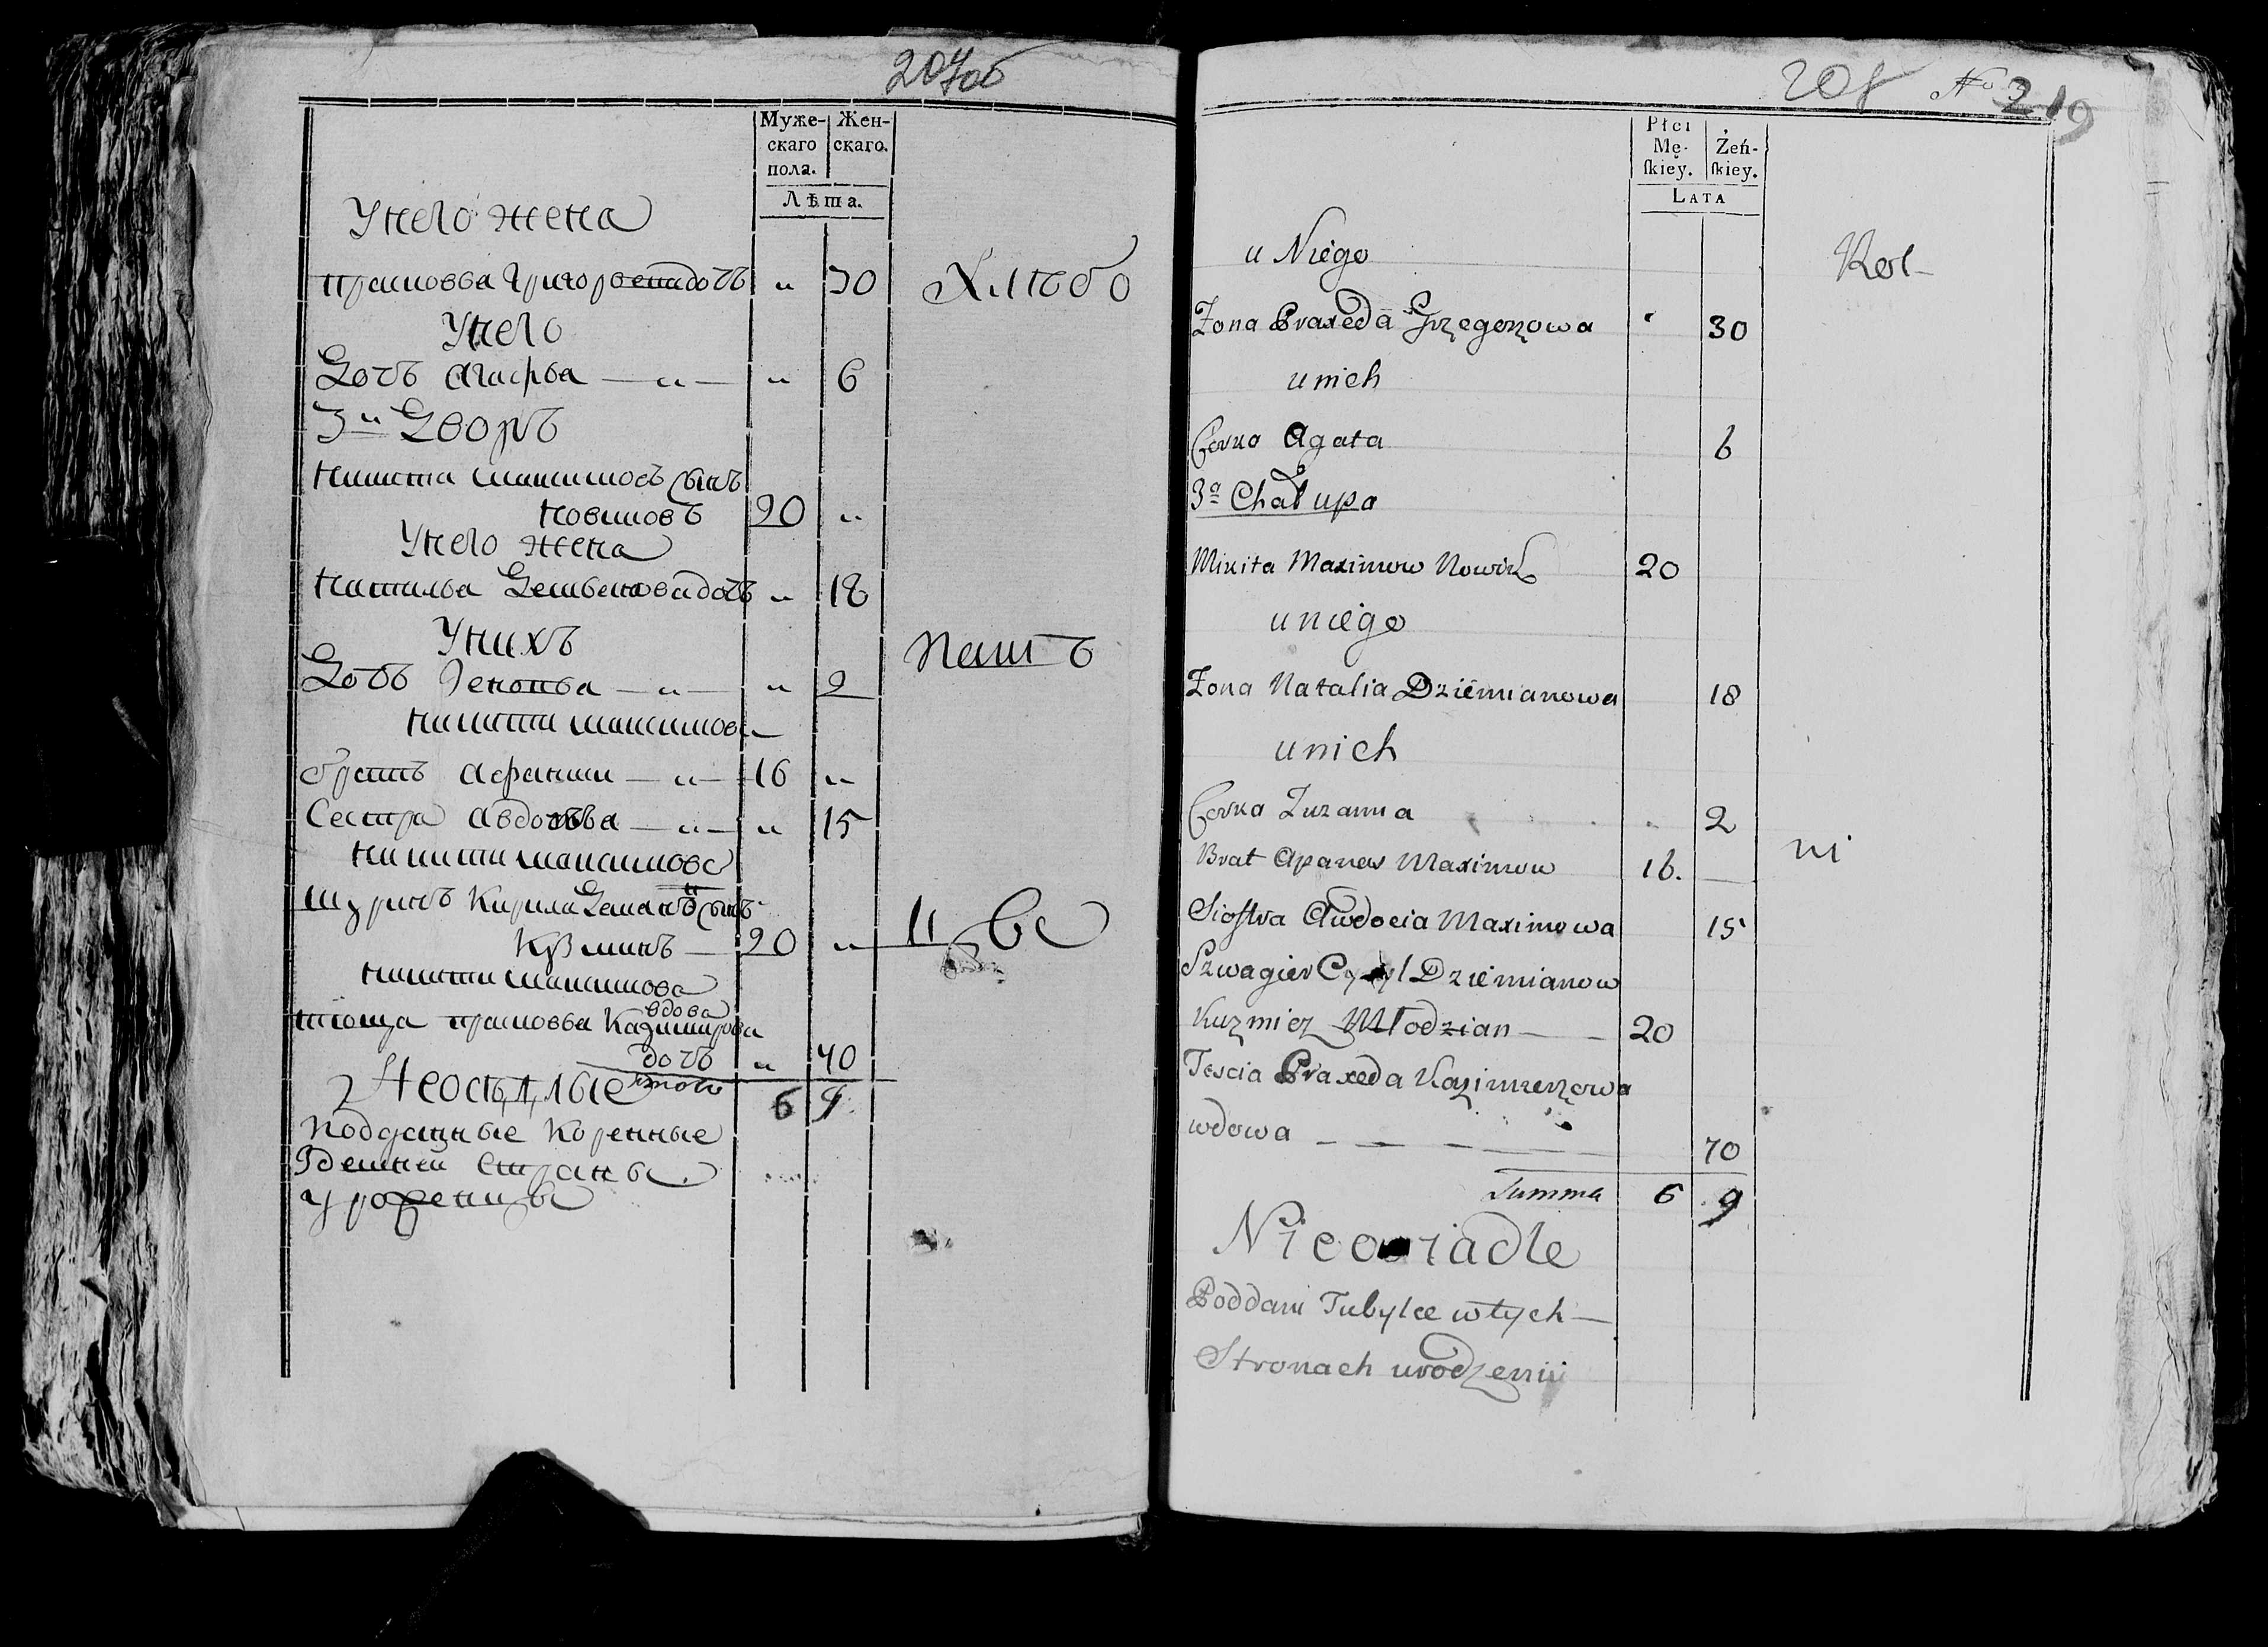 207об
Муже- Жен-
скаго скаго.
пола.
Лѣта.
Унего жена
прасковья Григорьевадочь „ 30 Хлѣбо
Унего
Дочь агафья — „ — „ 6
3й Дворъ
никита максимовъ сынъ
новиковъ 20 „
Унего жена
наталья Демьяновадочь „ 18
Унихъ Пашъ
Дочь — „ — „ 2
никиты максимова
братъ афанаси — „ — 16 „
Сестра авдотья — „ — „ 15
никиты максимова
шуринъ Кирила Демяновъ сынъ
Кузминъ — 20 „ цы
никиты максимова
вдова
тіоща прасковья Казимирова
дочь „ 40
итого 6 9
Неоседлые
подданные Коренные
Здешней страны
уроженцы
208 No 219
Płci Żeń-
Mę- ſkiey.
ſkiey.
LATA
u Niego Rol-
Zona Praxeda Grzegorzowa „ 30
unich
Corka Agata 6
3a Chałupa
Mikita Maximow Nowik 20
uniego
Zona Natalia Dziemianowa 18
unich
Corka Zuzanna 2
ni
Brat Apanas Maximow 16. —
Siostra Awdocia Maximowa 15
Szwagier Cyryl Dziemianow
Kuzmicz Młodzian — — 20
Tescia Praxeda Kazimierzowa
wdowa — — — — 70
Summa 6 9
Nieosiadle
Poddani Tubylce wtych —
Stronach urodzenni